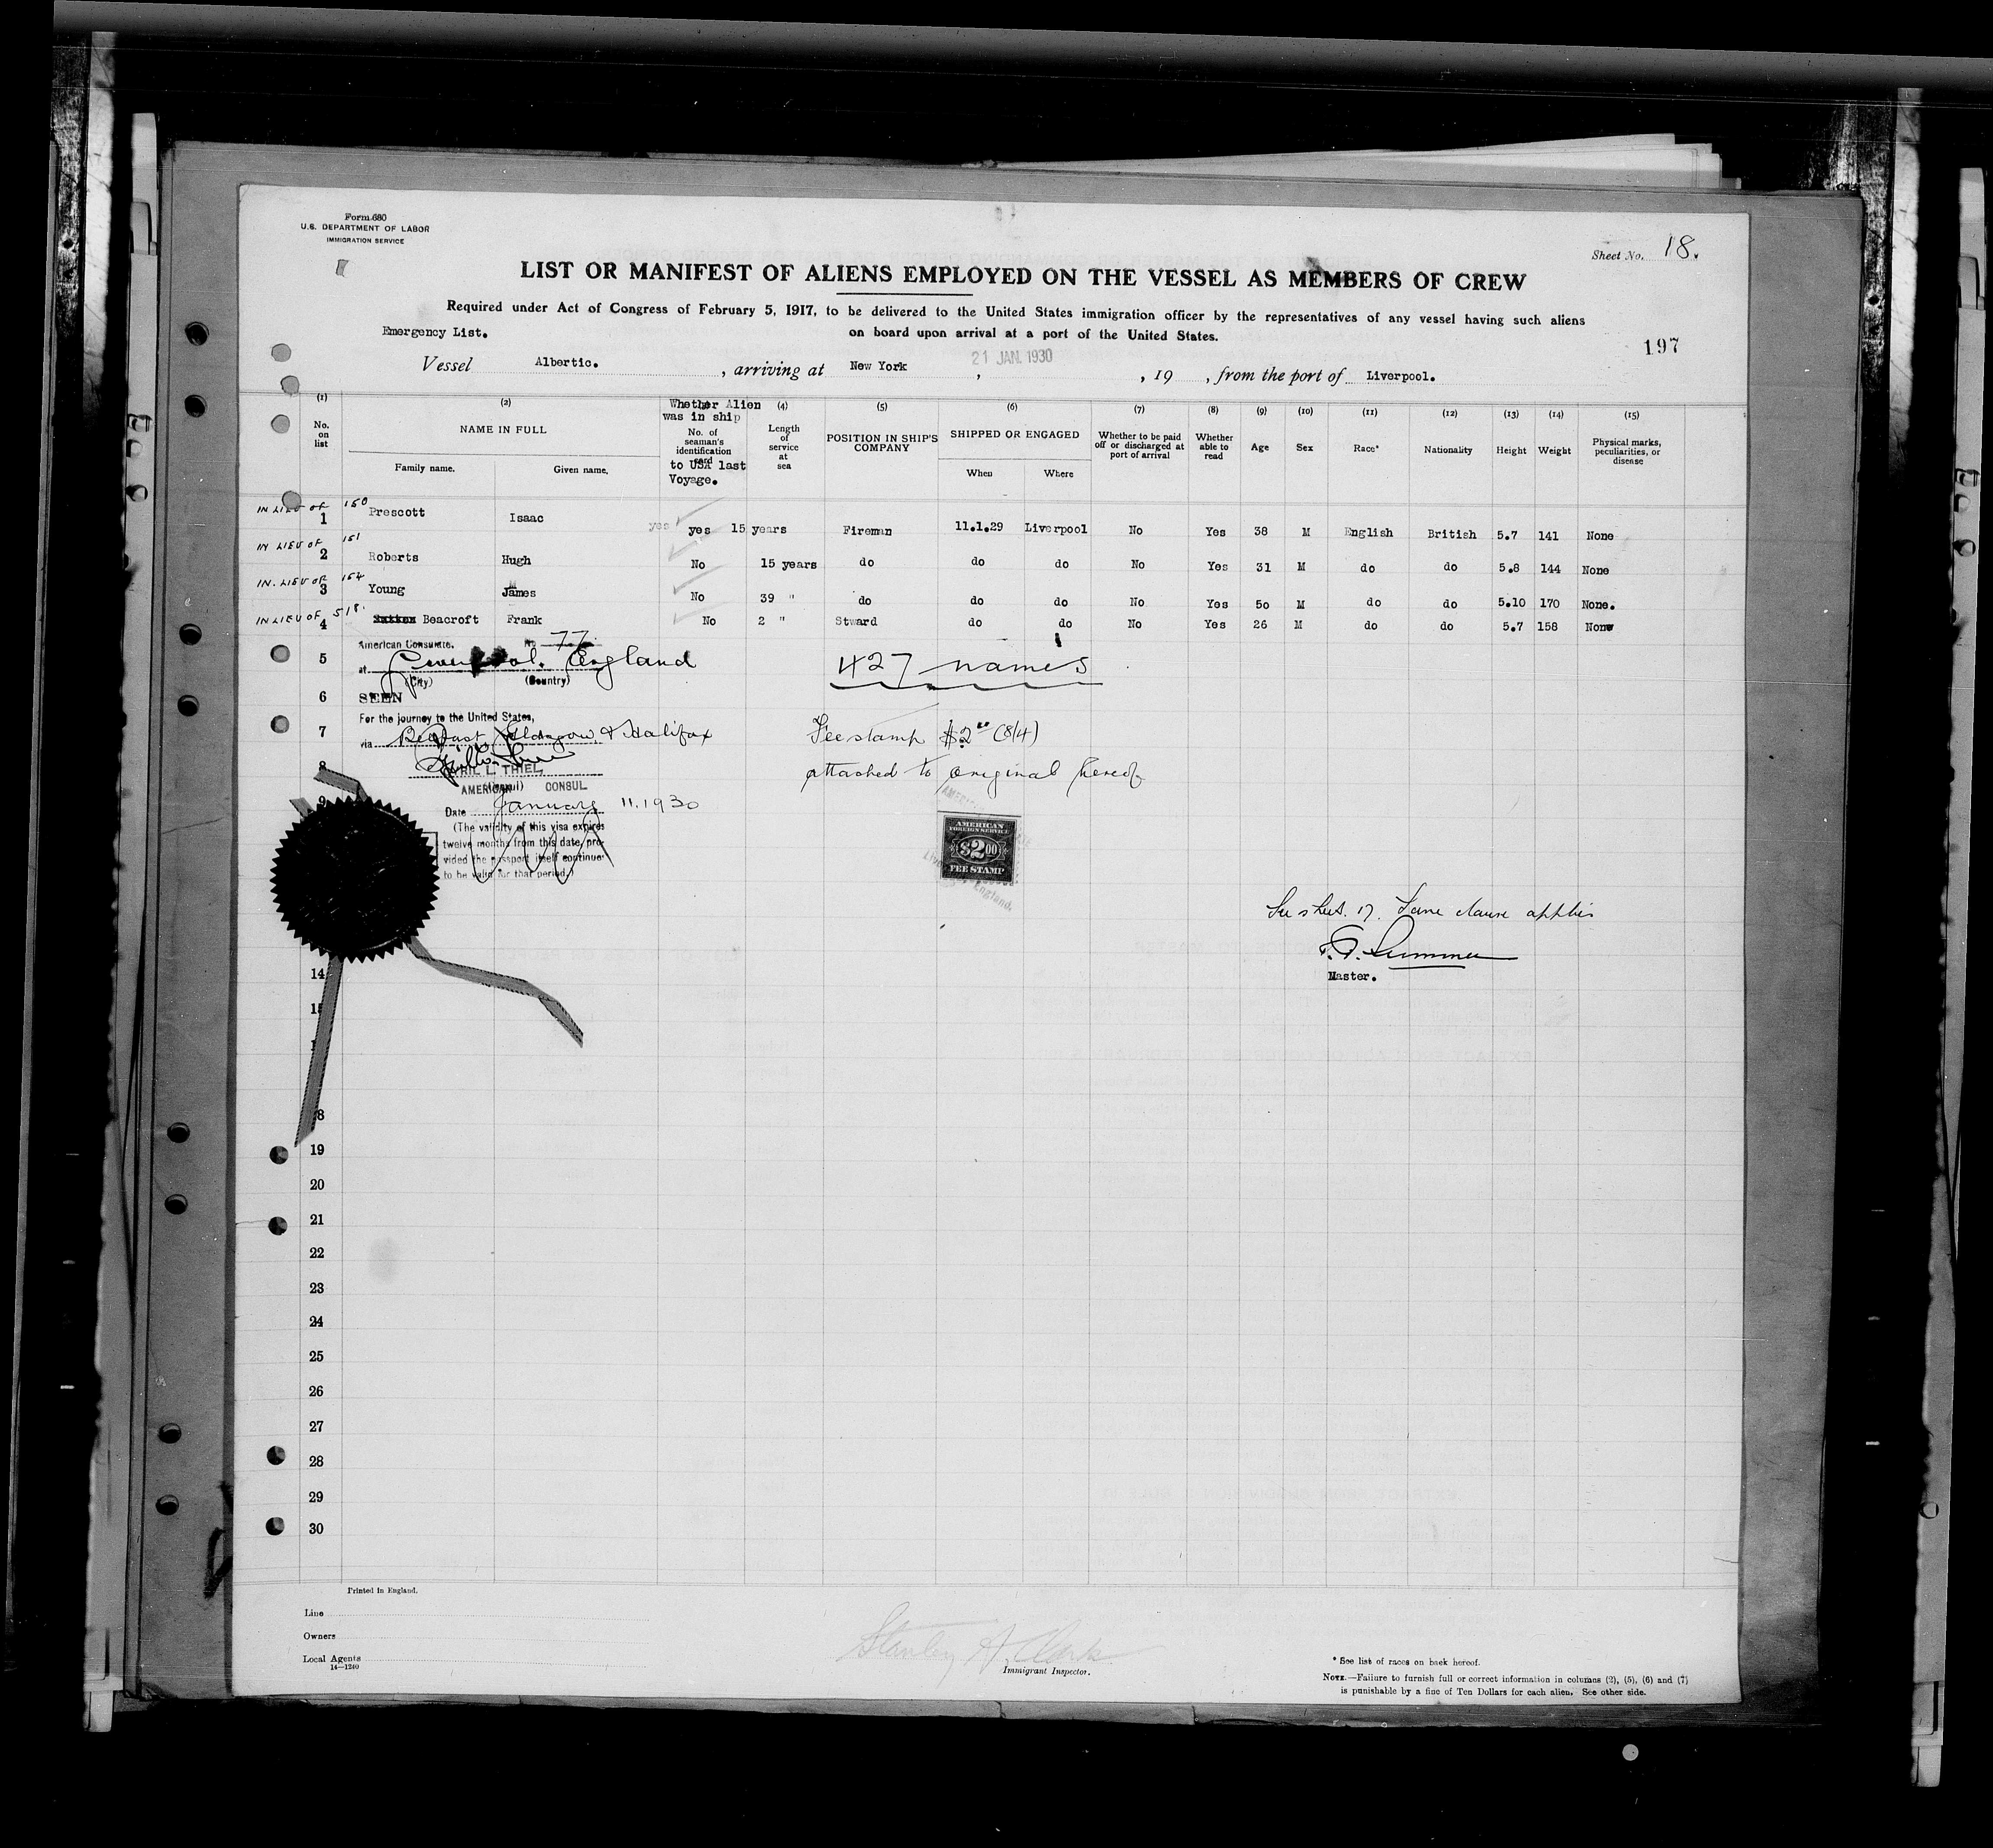 Form 680
U.S. DEPARTMENT OF LABOR
IMMIGRATION SERVICE
Sheet No. 18.
LIST OR MANIFEST OF ALIENS EMPLOYED ON THE VESSEL AS MEMBERS OF CREW
Required under Act of Congress of February 5, 1917, to be delivered to the United States immigration officer by the representatives of any vessel having such aliens
on board upon arrival at a port of the United States.
Emergency List.
197
Vessel Albertic. , arriving at New York , 21 JAN. 1930 , 19 , from the port of Liverpool.
(1) (2) Whether Alien was in ship (4) (5) (6) (7) (8) (9) (10) (11) (12) (13) (14) (15)
No. on list NAME IN FULL No. of seaman's identification card to USA last Voyage. Length of service at sea POSITION IN SHIP'S COMPANY SHIPPED OR ENGAGED Whether to be paid off or discharged at port of arrival Whether able to read Age Sex Race* Nationality Height Weight Physical marks, peculiarities, or disease
Family name. Given name. When Where
IN LIEU OF 150 1 Prescott Isaac yes yes 15 years Fireman 11.1.29 Liverpool No Yes 38 M English British 5.7 141 None
IN LIEU OF 151 2 Roberts Hugh No 15 years do do do No Yes 31 M do do 5.8 144 None
IN. LIEU OF 154 3 Young James No 39 " do do do No Yes 50 M do do 5.10 170 None.
IN LIEU OF 518. 4 Beacroft Frank No 2 " Stward do do No Yes 26 M do do 5.7 158 None
American Consulate. No 77.
5 at Liverpool. England 427 names
(City) (Country)
6 SEEN
For the journey to the United States,
7 via Belfast, Glasgow & Halifax Fee stamp $2 00 (8/4)
8 CYRIL L. THIEL, attached to original hereof
AMERICAN (Consul) CONSUL
9 Date January 11. 1930
(The validity of this visa expires
twelve months from this date, pro-
vided the passport itself continue
to be valid for that period.)
AMERICAN
FOREIGN SERVICE
$2.00
FEE STAMP
England.
See sheet. 17. Same clause applies
Summer
Master.
14
15
18
19
20
21
22
23
24
25
26
27
28
29
30
Printed in England.
Line
Owners
Local Agents
14—1240
Stanley A. Clark
Immigrant Inspector.
* See list of races on back hereof.
NOTE.—Failure to furnish full or correct information in columns (2), (5), (6) and (7)
is punishable by a fine of Ten Dollars for each alien. See other side.